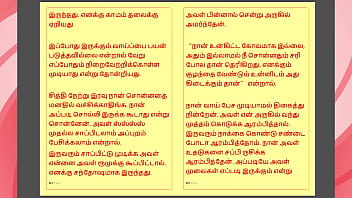 இருந்தது. எனக்கு காமம் தலைக்கு
ஏறியது.
இப்போது இருக்கும் வாய்ப்பை பயன்
படுத்தவில்லை என்றால் வேறு
எப்போதும் நிறைவேற்றிக்கொள்ள
முடியாது என்று தோன்றியது.
சித்தி நேற்று இரவு நான் சொன்னதை
மனதில் வச்சிக்காதிங்க. நான்
அப்படி சொல்லி இருக்க கூடாது என்று
சொன்னேன். அவள் ஸ்ஸ்ஸ்ஸ்
முதல்ல சாப்பிடலாம் அப்புறம்
பேசிக்கலாம் என்றாள்.
இருவரும் சாப்பிட்டு முடிக்க அவள்
என்னை அவள் ரூமுக்கு கூப்பிட்டாள்.
எனக்கு சந்தோஷமாக இருந்தது.
அவள் பின்னால் சென்று அருகில்
அமர்ந்தேன்.
"நான் உன்கிட்ட கோவமாக இல்லை,
அதும் இல்லாமல் நீ சொன்னதும் சரி
போல தான் தெரிகிறது, எனக்கும்
குழந்தை வேண்டும் உன்னிடம் அது
கிடைக்கும் தான்" என்றாள்.
நான் வாய் பேச முடியாமல் திகைத்து
நின்றேன். அவள் என் அருகில் வந்து
முத்தம் கொடுக்க ஆரம்பித்தாள்.
இருவரும் நாக்கை கொண்டு சண்டை
போடா ஆரம்பித்தோம். நான் அவள்
உதடுகளை சப்பி ருசிக்க
ஆரம்பித்தேன். அப்படியே அவள்
முலைகள் எப்படி இருக்கும் என்று